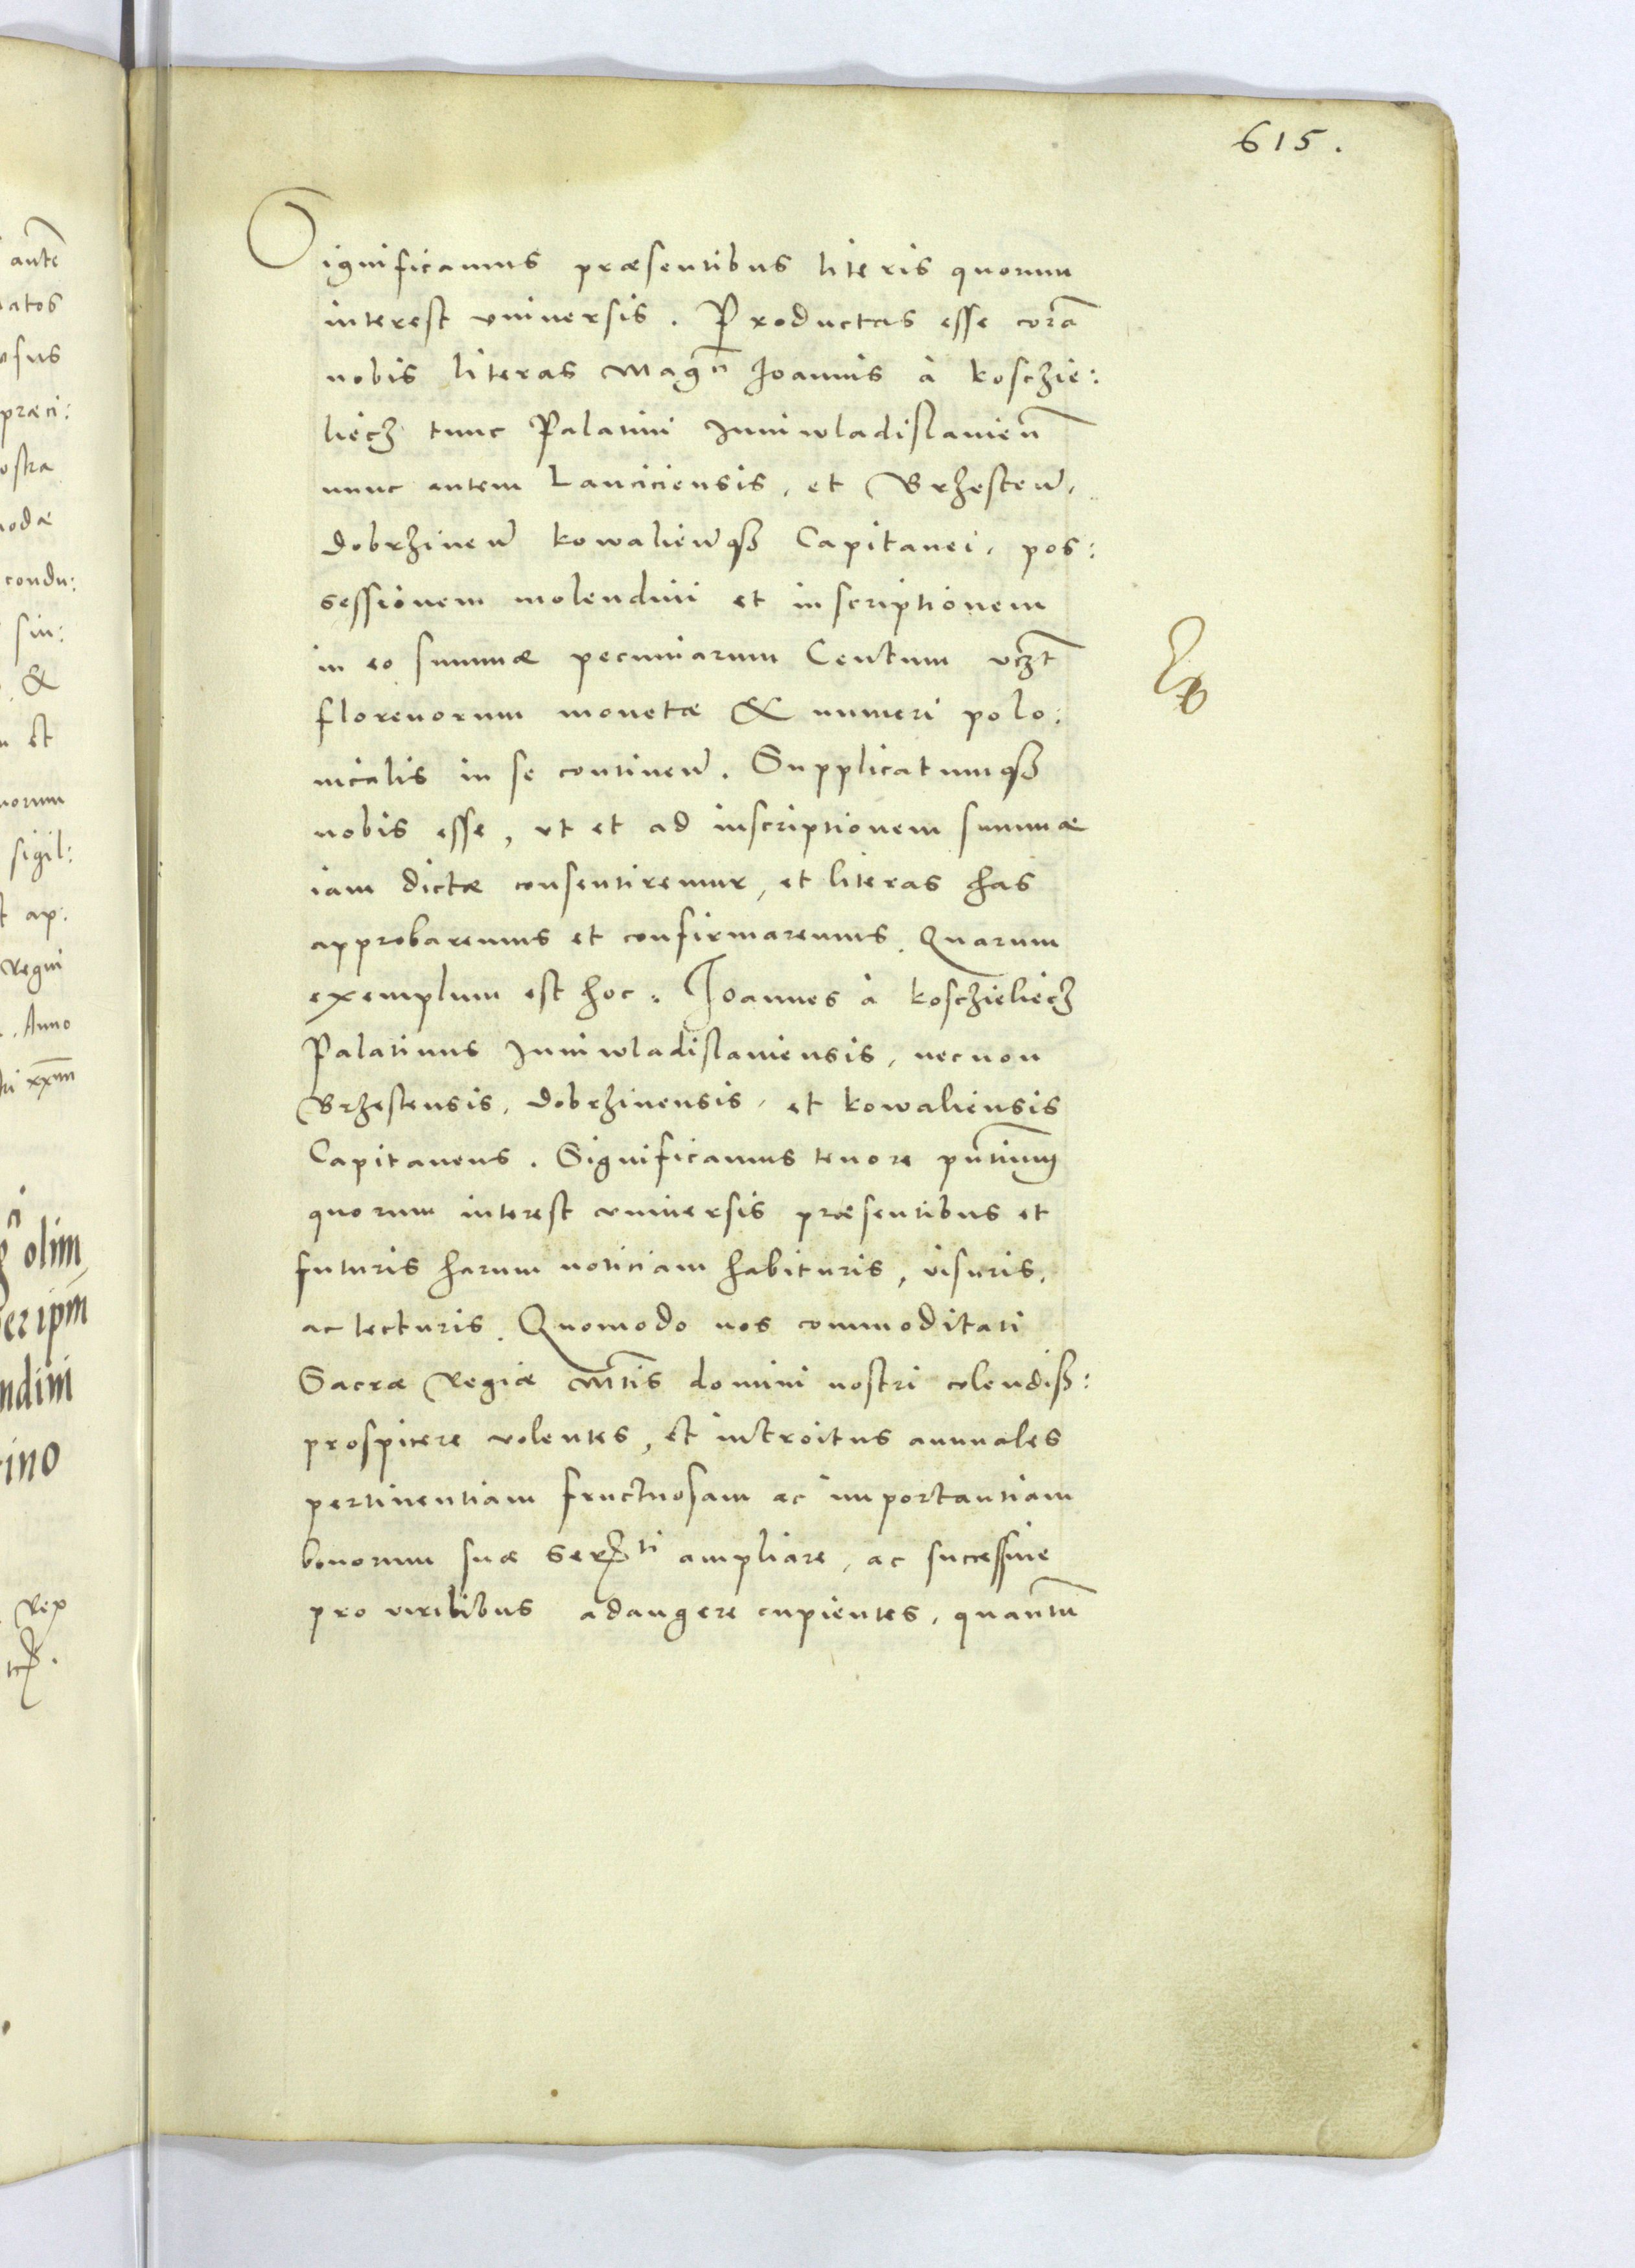 615.
Significamus præsentibus literis quorum
interest vniuersis. Productas esse corã
nobis literas Magci Ioannis à Koschie:
liecz tunc Palatini Iuniwladislauien̄
nunc autem Lanciciensis, et Brzesten̄,
Dobrzinen̄ Kowalien̄qʒ Capitanei, pos:
sessionem molendini et inscriptionem
in eo summæ pecuniarum Centum vcʒt
florenorum monetæ & numeri polo:
nicalis in se continen̄. Supplicatumqʒ
nobis esse, vt et ad inscriptionem summæ
iam dictæ consentiremur, et literas has
approbaremus et confirmaremus. Quarum
exemplum est hoc. Ioannes à Koschieliecz
Palatinus Iuniwladislauiensis, necnon
Brzestensis, Dobrzinensis, et Kowaliensis
Capitaneus. Significamus tenore pn̄tium
quorum interest vniuersis præsentibus et
futuris harum noticiam habituris, visuris,
ac lecturis. Quomodo nos commoditati
Sacræ Regiæ Mtis domini nostri colendiss:
prospicere volentes, et introitus annuales
pertinentiam fructuosam ac importantiam
bonorum suæ Serti ampliare, ac successiue
pro viribibus adaugere cupientes, quantũ
autẽ
præci:
condu:
sin:
&
sigil:
ap:
Regni
Anno
olim
Rex